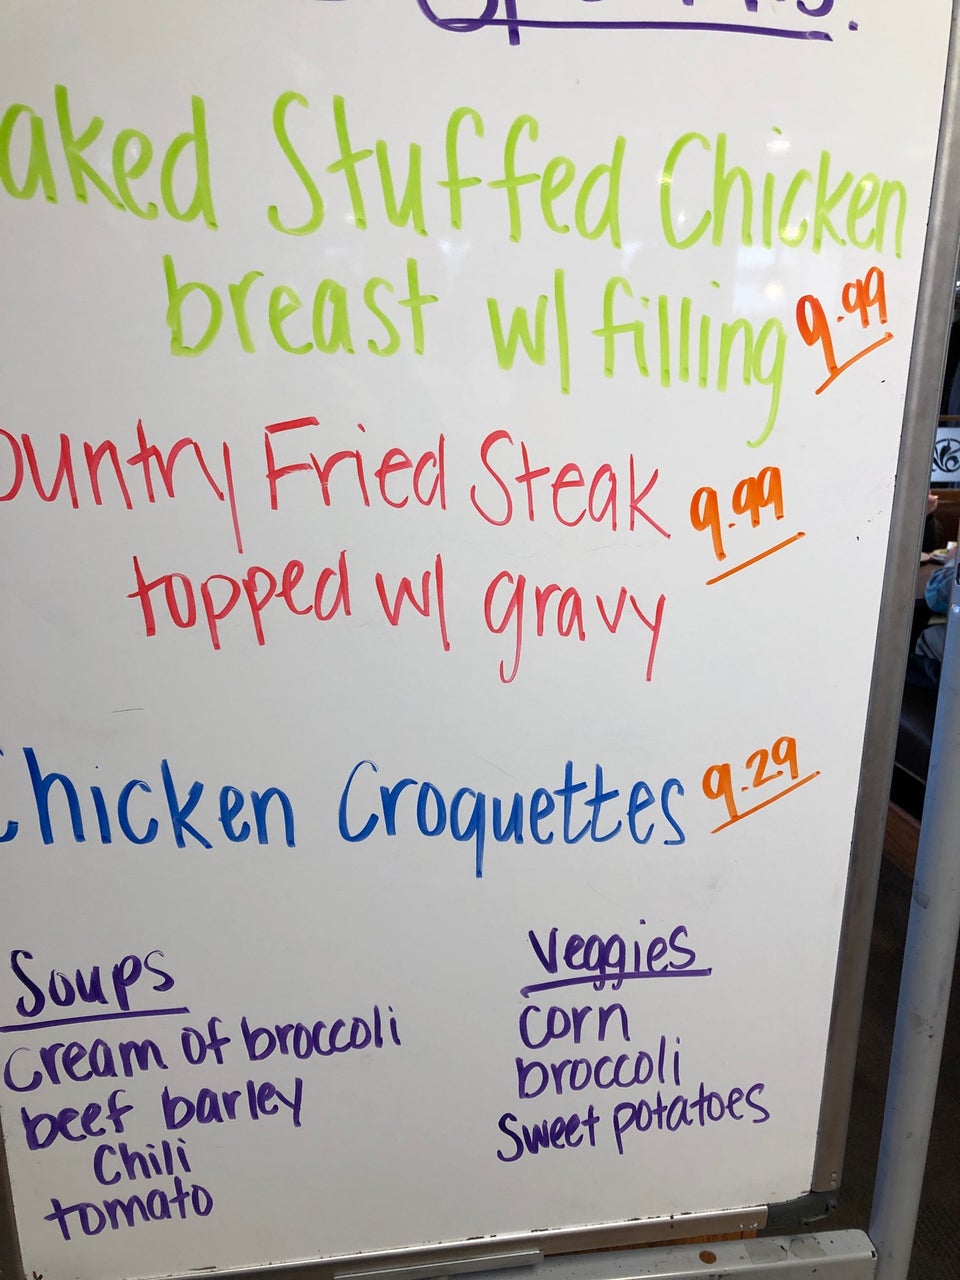 aked Stuffed Chicken
breast w/ filling 9.99
ountry Fried Steak 9.99
topped w/ gravy
Chicken Croquettes 9.29
Soups
cream of broccoli
beef barley
Chili
tomato
Veggies
corn
broccoli
Sweet potatoes